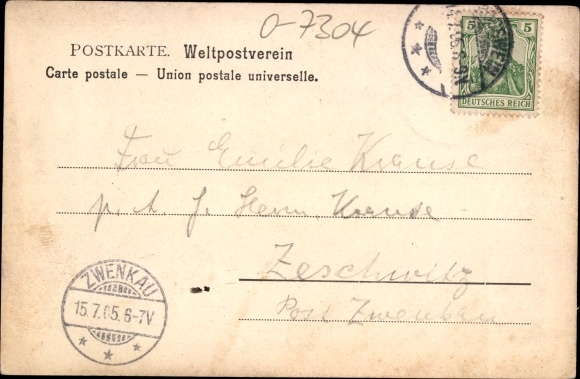 0-7304
POSTKARTE. Weltpostverein
Carte postale — Union postale universelle.
5 5
DEUTSCHES REICH
Frau Emilie Krause
p. a. f. Herrn Krause
Zeschwitz
Post Zwenkau
ZWENKAU
15.7.05.6-7V